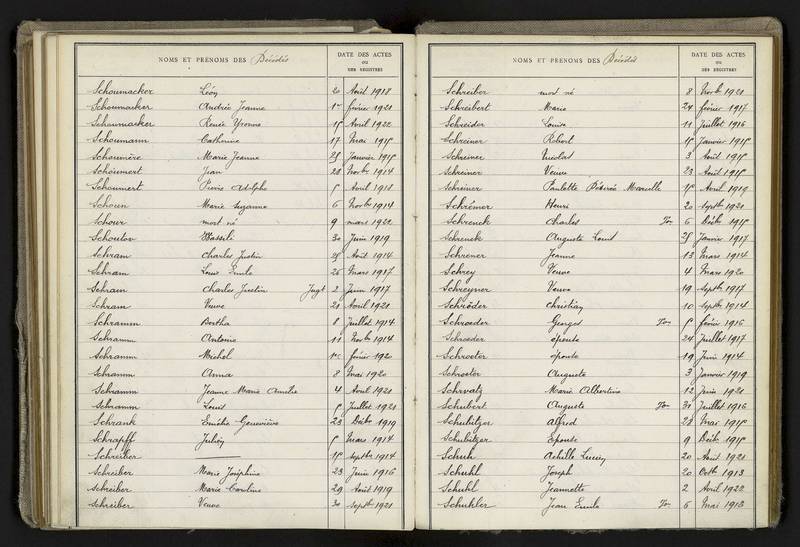 NOMS ET PRÉNOMS DES Décédés
DATE DES ACTES
OU
DES REGISTRES
Schoumacker Léon 20 Août 1918
Schoumacker Andrée Jeanne 1er février 1921
Schoumacker Renée Yvonne 15 Avril 1922
Schoumann Catherine 17 Mai 1915
Schounère Marie Jeanne 25 Janvier 1915
Schounert Jean 28 Novbre 1914
Schounert Pierre Adolphe 5 Avril 1918
Schoun Marie Suzanne 6 Novbre 1914
Schour mort né 9 mars 1922
Schoulov Wassili 30 Juin 1919
Schram Charles Justin 25 Août 1914
Schram Louis Emile 26 Mars 1917
Schram Charles Justin Jugt 2 Juin 1917
Schram Veuve 21 Avril 1921
Schramm Bertha 8 Juillet 1914
Schramm Antoine 11 Novbre 1914
Schramm Michel 1er février 192
Schramm Anna 8 Mai 1920
Schramm Jeanne Marie Amélie 4 Avril 1921
Schramm Louis 5 Juillet 1921
Schrank Emélie Geneviève 23 Décbre 1919
Schrapff Julien 5 Mars 1914
Schreiber — 15 Septbre 1914
Schreiber Marie Joséphine 23 Juin 1916
Schreiber Marie Caroline 29 Août 1919
Schreiber Veuve 30 Septbre 1921
NOMS ET PRÉNOMS DES Décédés
DATE DES ACTES
OU
DES REGISTRES
Schreiber mort né 8 Novbre 1921
Schreibert Marie 24 février 1917
Schreider Louise 11 Juillet 1916
Schreiner Robert 15 Janvier 1915
Schreiner Nicolas 3 Août 1915
Schreiner Veuve 23 Août 1915
Schreiner Paulette Désirée Marcelle 15 Avril 1919
Schrémer Henri 20 Septbre 1921
Schrenck Charles Ton 6 Décbre 1915
Schrenck Auguste Louis 25 Janvier 1917
Schrener Jeanne 13 Mars 1914
Schrey Veuve 4 Mars 1920
Schreyner Veuve 19 Septbre 1917
Schröder Christian 10 Septbre 1914
Schroeder Georges Ton 5 février 1916
Schroeder épouse 24 Juillet 1917
Schroeter épouse 19 Juin 1914
Schroeter Auguste 3 Janvier 1919
Schrvatz Marie Albertine 12 Juin 1921
Schubert Auguste Ton 31 Juillet 1916
Schubitzer Alfred 28 Mai 1915
Schubitzer Epouse 9 Décbre 1915
Schuh Achille Lucien 20 Août 1921
Schuhl Joseph 20 Octbre 1913
Schuhl Jeannette 2 Avril 1922
Schuhler Jean Emile Ton 6 Mai 1913